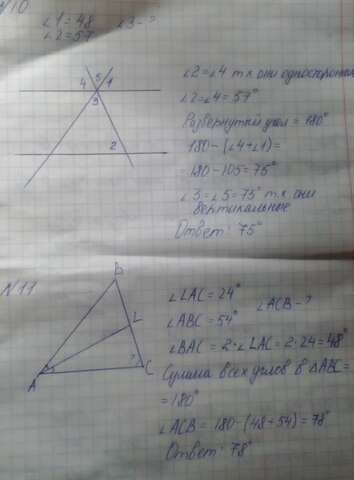 N10
∠1 = 48 ∠3 - ?
∠2 = 57
4 5 1
3
2
∠2 = ∠4 т.к они односторонн
∠2 = ∠4 = 57°
Развернутый угол = 180°
180 - (∠4 + ∠1) =
= 180 - 105 = 75°
∠3 = ∠5 = 75° т.к они
вертикальные
Ответ: 75°
N 11
B
L
A
C
?
∠LAC = 24°
∠ABC = 54° ∠ACB - ?
∠BAC = 2·∠LAC = 2·24 = 48°
Сумма всех углов в △ABC =
= 180°
∠ACB = 180 - (48 + 54) = 78°
Ответ: 78°